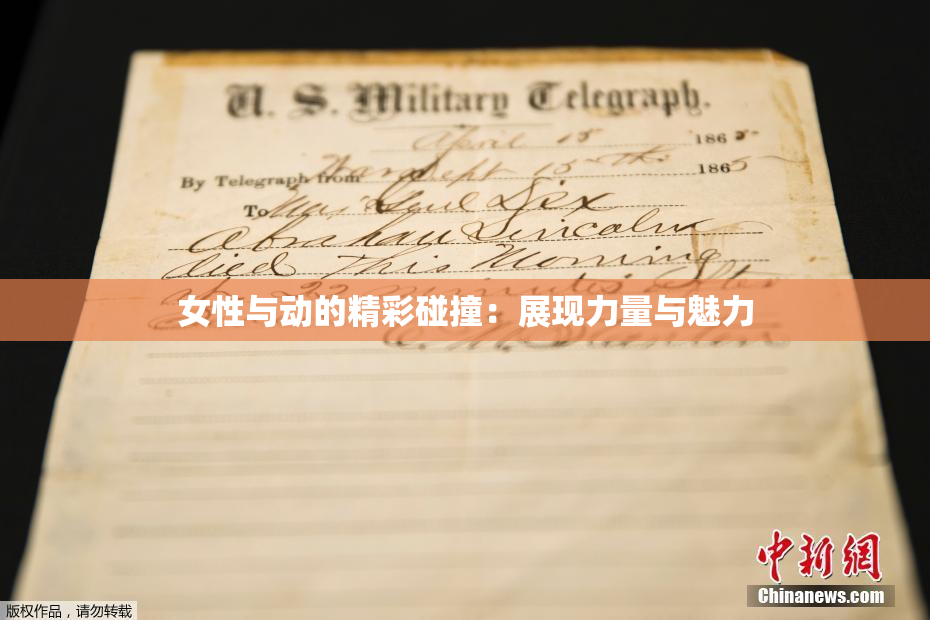 U. S. Military Telegraph.
April 15 1865.
By Telegraph from War Dept 15th 1865
To Maj Genl Dix
Abraham Lincoln
died This Morning
22 minutes after
女性与动的精彩碰撞：展现力量与魅力
E. M. Stanton
中新網
Chinanews.com
版权作品，请勿转载